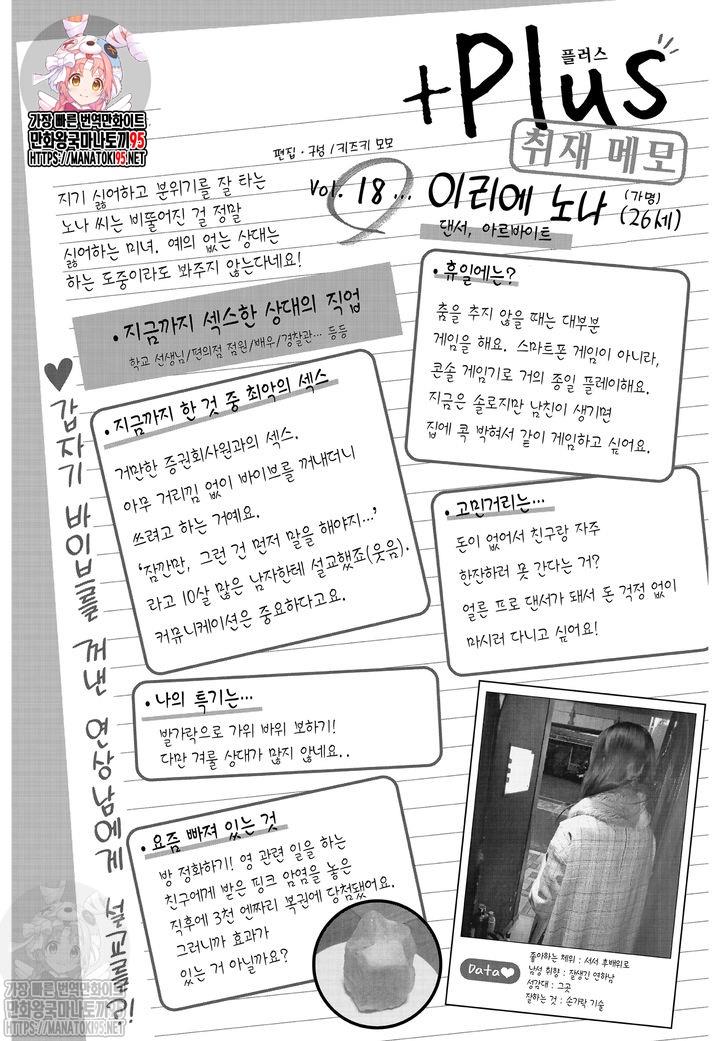 +Plus
플러스
취재 메모
가장 빠른 번역만화이트
만화왕국마나토끼95
HTTPS://MANATOKI95.NET
편집·구성 / 키즈키 모모
Vol. 18... 이리에 노나
(가명)
(26세)
댄서, 아르바이트
지기 싫어하고 분위기를 잘 타는
노나 씨는 비뚤어진 걸 정말
싫어하는 미녀. 예의 없는 상대는
하는 도중이라도 봐주지 않는다네요!
·지금까지 섹스한 상대의 직업
학교 선생님/편의점 점원/배우/경찰관… 등등
·휴일에는?
춤을 추지 않을 때는 대부분
게임을 해요. 스마트폰 게임이 아니라,
콘솔 게임기로 거의 종일 플레이해요.
지금은 솔로지만 남친이 생기면
집에 콕 박혀서 같이 게임하고 싶어요.
♥갑자기 바이브를 꺼낸 연상남에게 설교를?!
·지금까지 한 것 중 최악의 섹스
거만한 증권회사원과의 섹스.
아무 거리낌 없이 바이브를 꺼내더니
쓰려고 하는 거예요.
'잠깐만, 그런 건 먼저 말을 해야지…'
라고 10살 많은 남자한테 설교했죠(웃음).
커뮤니케이션은 중요하다고요.
·고민거리는…
돈이 없어서 친구랑 자주
한잔하러 못 간다는 거?
얼른 프로 댄서가 돼서 돈 걱정 없이
마시러 다니고 싶어요!
·나의 특기는…
발가락으로 가위 바위 보하기!
다만 겨룰 상대가 많지 않네요..
·요즘 빠져 있는 것
방 정화하기! 영 관련 일을 하는
친구에게 받은 핑크 암염을 놓은
직후에 3천 엔짜리 복권에 당첨됐어요.
그러니까 효과가
있는 거 아닐까요?
Data♥
좋아하는 체위 : 서서 후배위로
남성 취향 : 잘생긴 연하남
성감대 : 그곳
잘하는 것 : 손가락 기술
가장 빠른 번역만화이트
만화왕국마나토끼95
HTTPS://MANATOKI95.NET